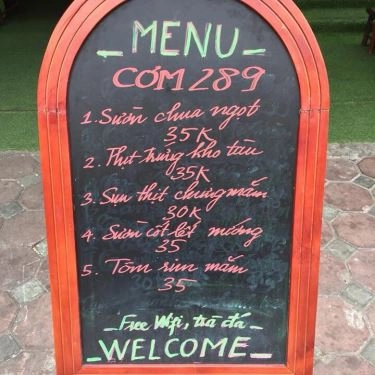 MENU
CƠM 289
1. Sườn chua ngọt
35K
2. Thịt trứng kho tàu
35K
3. Sụn thịt chưng mắm
30K
4. Sườn cốt lết nướng
35
5. Tôm rim mắm
35
Free Wifi, trà đá
WELCOME